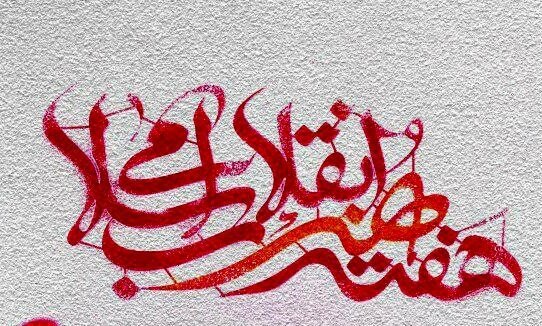 هفته هنر انقلاب اسلامی